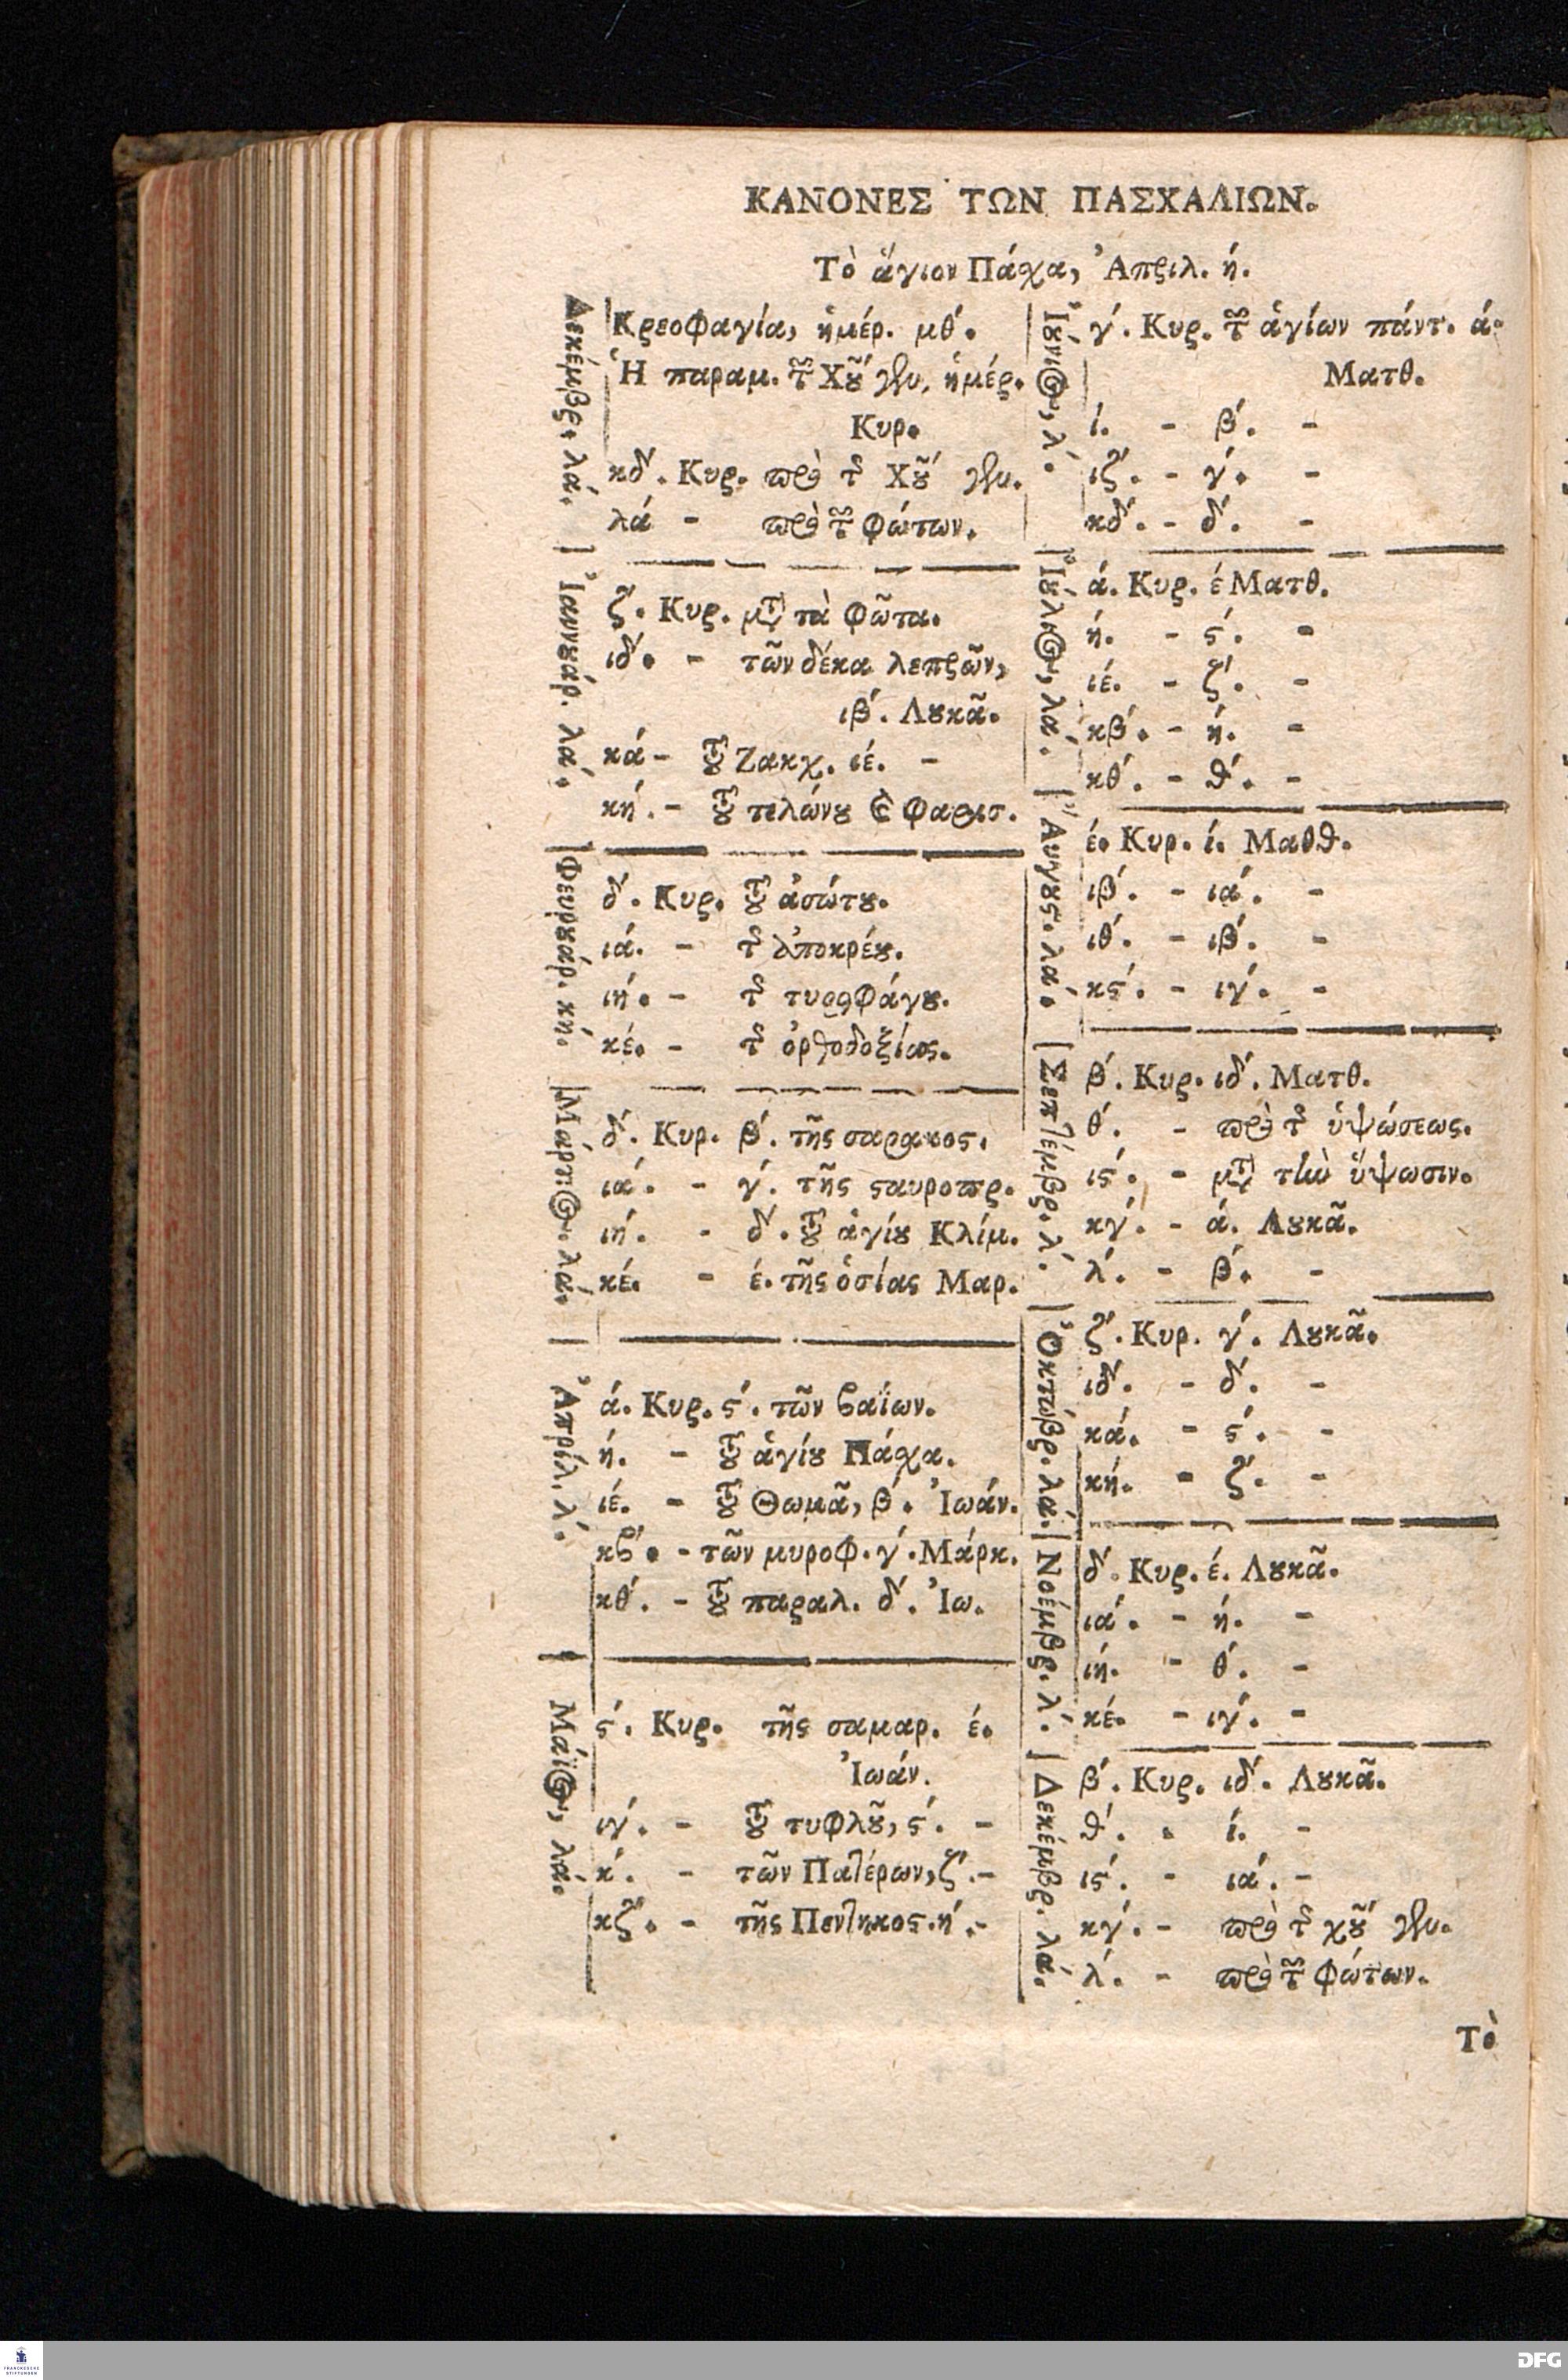 ΚΑΝΟΝΕΣ ΤΩΝ ΠΑΣΧΑΛΙΩΝ.
Τὸ ἅγιον Πάχα, Ἀπριλ. ή.
Δεκέμβρ. λά.
Κρεοφαγία, ἡμέρ. μθ΄.
Ἡ παραμ. τ̃ Χȣ͂ γεν. ἡμέρ.
Κυρ.
κδ΄. Κυρ. πρὸ τ͂ Χȣ͂ γεν.
λά - πρὸ τ͂ φώτων.
Ἰαννȣάρ. λά.
ζ΄. Κυρ. μετὰ τὰ φῶτα.
ιδ΄. - τῶν δέκα λεπρῶν,
ιβ΄. Λȣκᾶ.
κά - τȣ͂ Ζακχ. ιέ. -
κή. - τȣ͂ τελώνȣ καὶ φαρισ.
Φευρȣάρ. κή.
δ΄. Κυρ. τȣ͂ ἀσώτȣ.
ιά. - τ͂ ἀποκρέȣ.
ιή. - τ͂ τυροφάγȣ.
κέ. - τ͂ ὀρθοδοξίας.
Μάρτιος. λά.
δ΄. Κυρ. β΄. τῆς σαρακοϛ.
ιά. - γ΄. τῆς ϛαυροπρ.
ιή. - δ΄. τȣ͂ ἁγίȣ Κλίμ.
κέ. - έ. τῆς ὁσίας Μαρ.
Ἀπρίλ. λ΄.
ά. Κυρ. ϛ΄. τῶν βαΐων.
ή. - τȣ͂ ἁγίȣ Πάχα.
ιέ. - τȣ͂ Θωμᾶ, β΄. Ἰωάν.
κβ΄. - τῶν μυροφ. γ΄. Μάρκ.
κθ΄. - τȣ͂ παραλ. δ΄. Ἰω.
Μάϊος, λά.
ϛ΄. Κυρ. τῆς σαμαρ. έ.
Ἰωάν.
ιγ΄. - τȣ͂ τυφλȣ͂, ϛ΄. -
κ΄. - τῶν Πατέρων, ζ΄. -
κζ΄. - τῆς Πεντηκοϛ. ή. -
Ἰȣ́νιος, λ΄.
γ΄. Κυρ. τ͂ ἁγίων πάντ. ά.
Ματθ.
ί. - β΄. -
ιζ΄. - γ΄. -
κδ΄. - δ΄. -
Ἰȣ́λιος, λά.
ά. Κυρ. έ Ματθ.
ή. - ϛ΄. -
ιέ. - ζ΄. -
κβ΄. - ή. -
κθ΄. - θ΄. -
Ἄυγȣϛ. λά.
έ. Κυρ. ί. Μαθθ.
ιβ΄. - ιά. -
ιθ΄. - ιβ΄. -
κϛ΄. - ιγ΄. -
Σεπτέμβρ. λ΄.
β΄. Κυρ. ιδ΄. Ματθ.
θ΄. - πρὸ τ͂ ὑψώσεως.
ιϛ΄. - μετὰ τὴν ὕψωσιν.
κγ΄. - ά. Λȣκᾶ.
λ΄. - β΄. -
Ὀκτώβρ. λά.
ζ΄. Κυρ. γ΄. Λȣκᾶ.
ιδ΄. - δ΄. -
κά. - ϛ΄. -
κή. - ζ΄. -
Νοέμβρ. λ΄.
δ΄. Κυρ. έ. Λȣκᾶ.
ιά. - ή. -
ιή. - θ΄. -
κέ. - ιγ΄. -
Δεκέμβρ. λά.
β΄. Κυρ. ιδ΄. Λȣκᾶ.
θ΄. - ί. -
ιϛ΄. - ιά. -
κγ΄. - πρὸ τ͂ χȣ͂ γεν.
λ΄. - πρὸ τ͂ φώτων.
Τὸ
FRANCKESCHE STIFTUNGEN
DFG